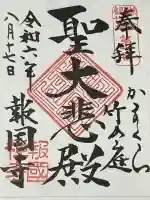 奉拝
かまくら
竹の庭
聖大悲殿
令和六年
八月十七日
報国寺